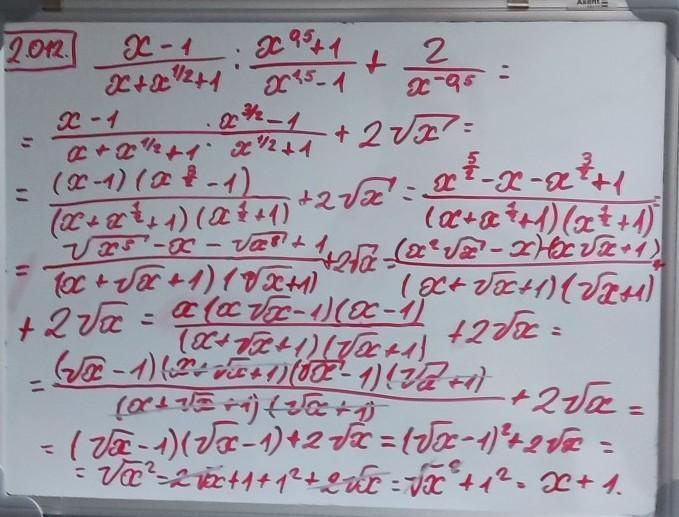 Axent
2.012. \frac{x-1}{x+x^{1/2}+1} : \frac{x^{0,5}+1}{x^{1,5}-1} + \frac{2}{x^{-0,5}} =
= \frac{x-1}{x+x^{1/2}+1} \cdot \frac{x^{3/2}-1}{x^{1/2}+1} + 2\sqrt{x} =
= \frac{(x-1)(x^{\frac{3}{2}}-1)}{(x+x^{\frac{1}{2}}+1)(x^{\frac{1}{2}}+1)} + 2\sqrt{x} = \frac{x^{\frac{5}{2}}-x-x^{\frac{3}{2}}+1}{(x+x^{\frac{1}{2}}+1)(x^{\frac{1}{2}}+1)} =
= \frac{\sqrt{x^5}-x-\sqrt{x^3}+1}{(x+\sqrt{x}+1)(\sqrt{x}+1)} + 2\sqrt{x} = \frac{(x^2\sqrt{x}-x)-(x\sqrt{x}+1)}{(x+\sqrt{x}+1)(\sqrt{x}+1)} +
+ 2\sqrt{x} = \frac{x(x\sqrt{x}-1)(x-1)}{(x+\sqrt{x}+1)(\sqrt{x}+1)} + 2\sqrt{x} =
= \frac{(\sqrt{x}-1)(x+\sqrt{x}+1)(\sqrt{x}-1)(\sqrt{x}+1)}{(x+\sqrt{x}+1)(\sqrt{x}+1)} + 2\sqrt{x} =
= (\sqrt{x}-1)(\sqrt{x}-1)+2\sqrt{x} = (\sqrt{x}-1)^2+2\sqrt{x} =
= \sqrt{x}^2-2\sqrt{x}+1+1^2+2\sqrt{x} = \sqrt{x}^2+1^2 = x+1.